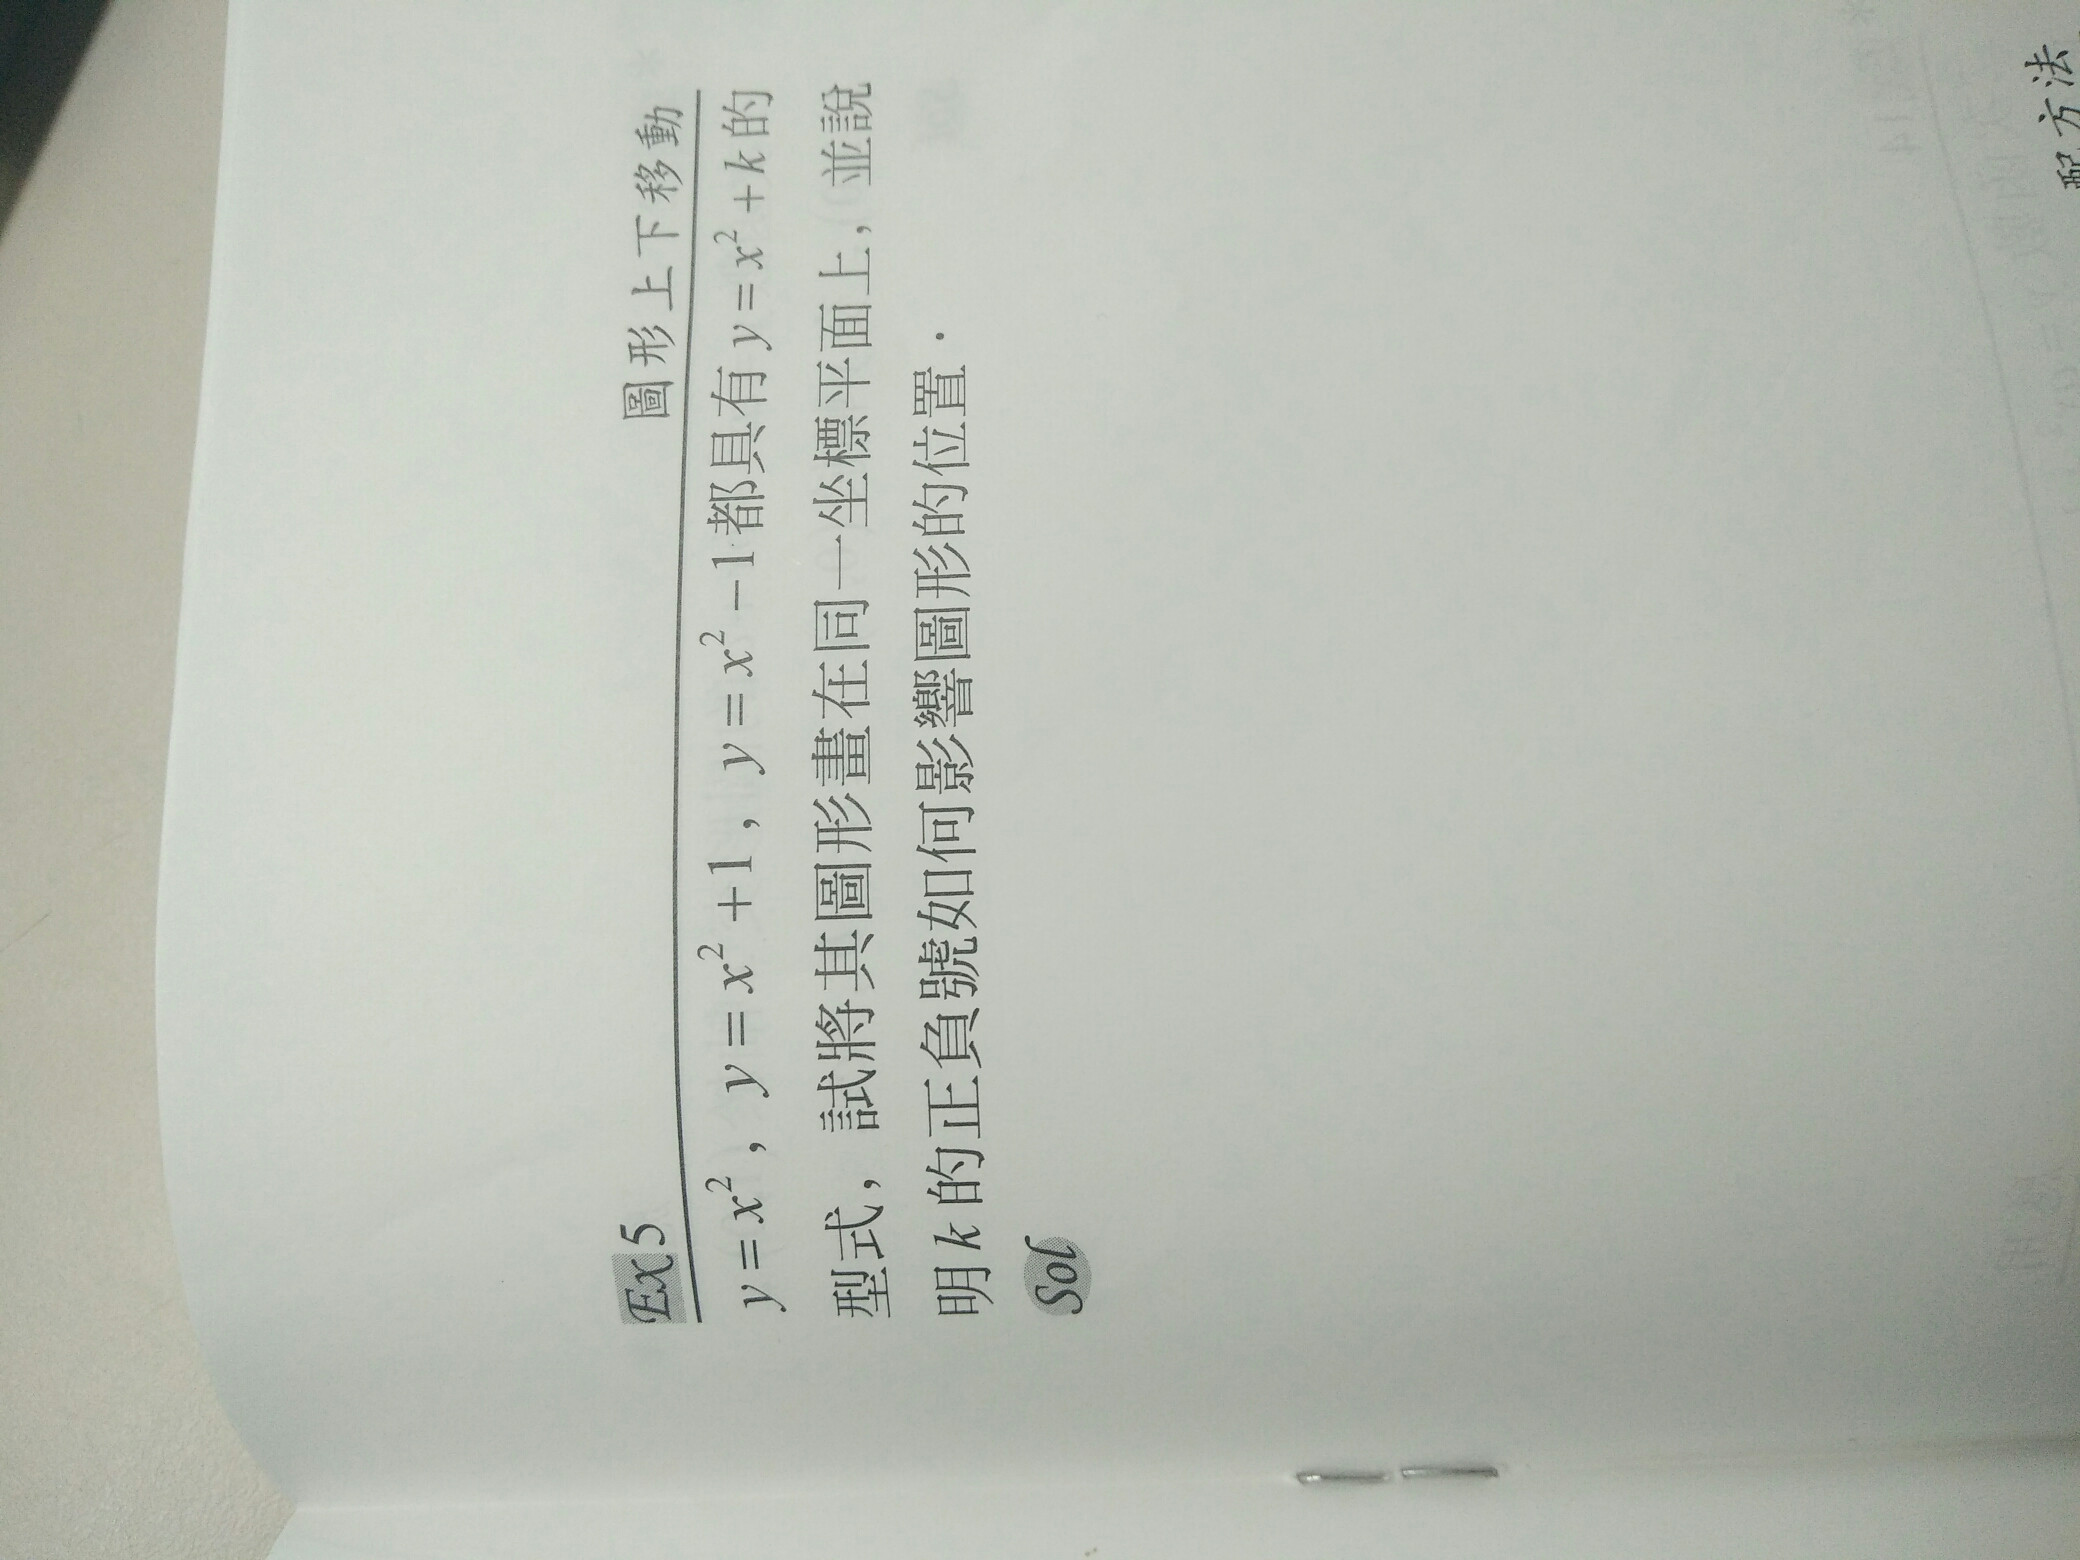 Ex 5 圖形上下移動
y = x², y = x² + 1, y = x² − 1都具有 y = x² + k 的
型式，試將其圖形畫在同一坐標平面上，並說
明 k 的正負號如何影響圖形的位置．
Sol
配方法